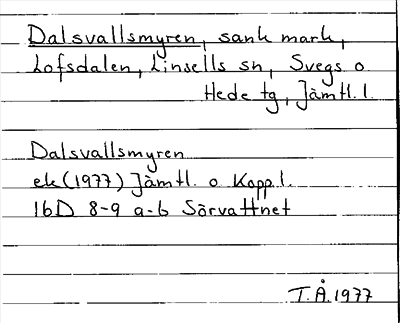 Dalsvallsmyren, sank mark,
Lofsdalen, Linsells sn, Svegs o
Hede tg, Jämtl. l.
Dalsvallsmyren
ek (1977) Jämtl. o Kopp. l.
16D 8-9 a-b Sörvattnet
T.Å. 1977